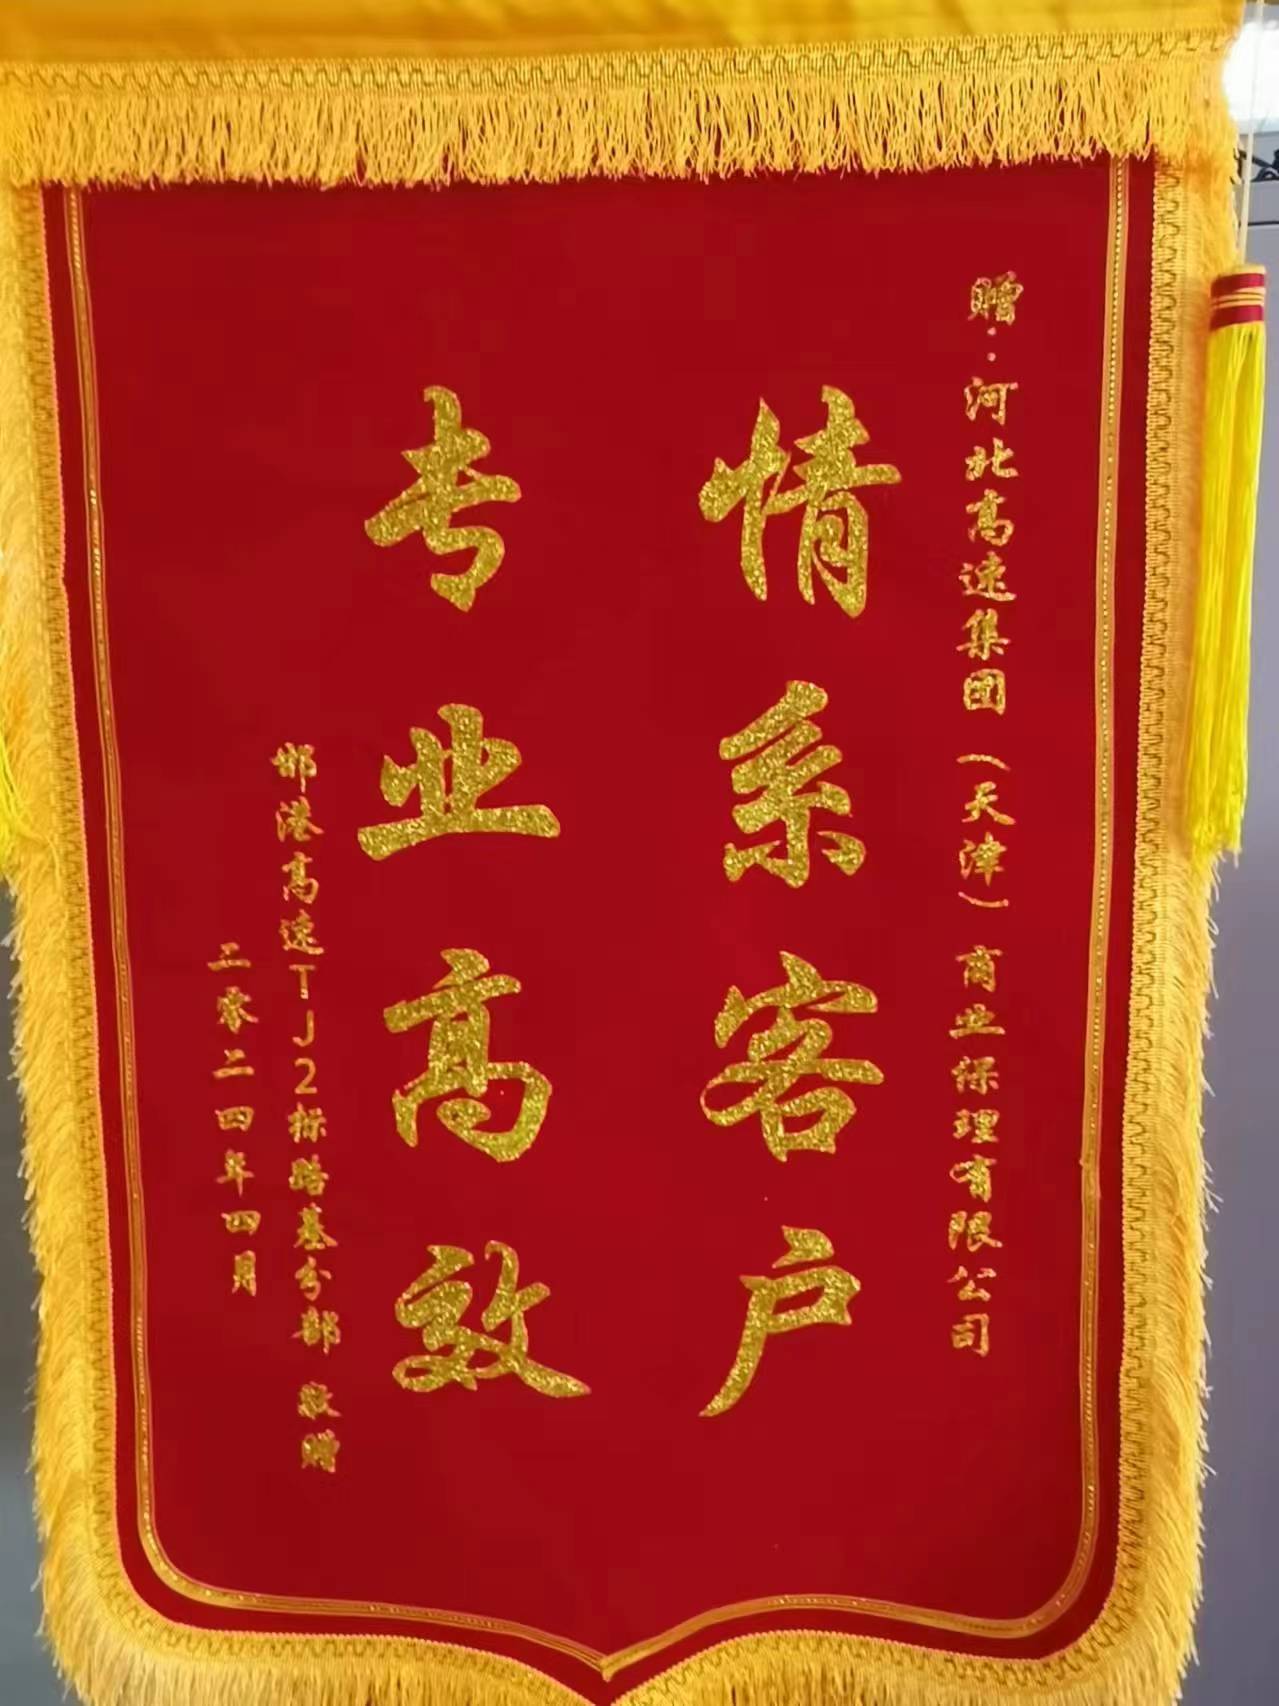 赠：河北高速集团（天津）商业保理有限公司
情系客户
专业高效
邯港高速TJ2标路基分部 敬赠
二零二四年四月